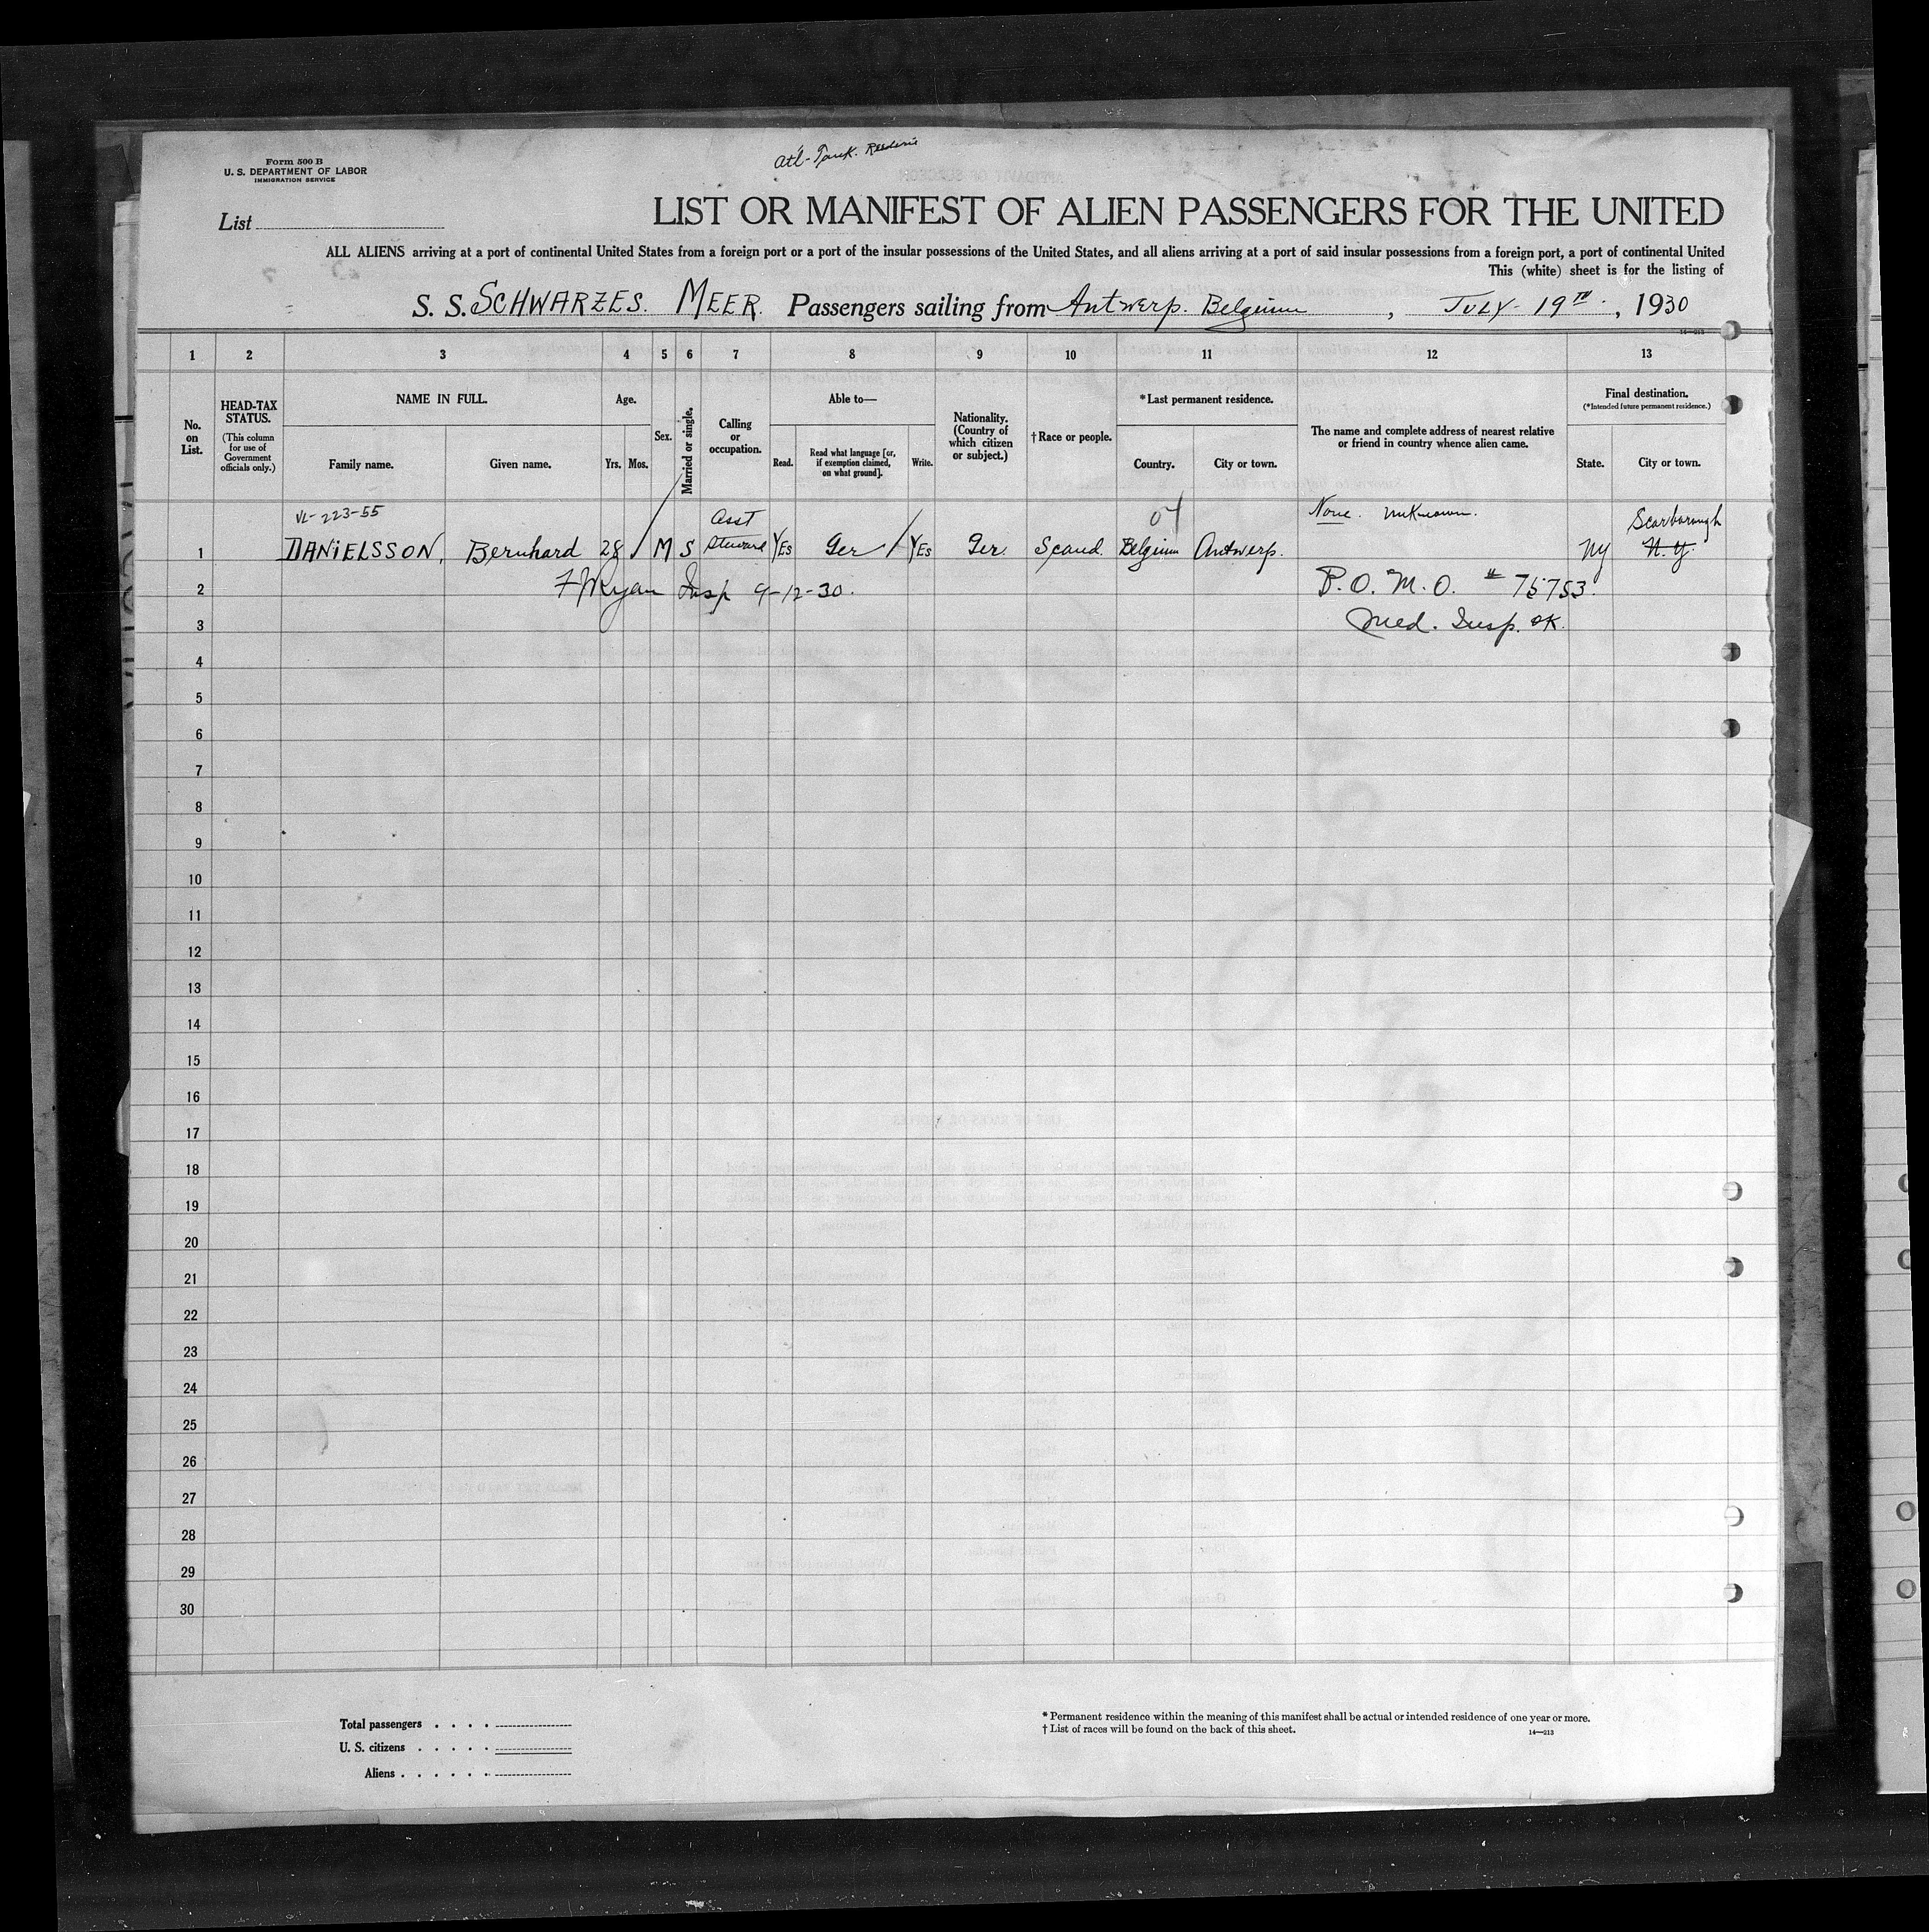 Atl-Tank. Reederei
Form 500 B
U. S. DEPARTMENT OF LABOR
IMMIGRATION SERVICE
List
LIST OR MANIFEST OF ALIEN PASSENGERS FOR THE UNITED
ALL ALIENS arriving at a port of continental United States from a foreign port or a port of the insular possessions of the United States, and all aliens arriving at a port of said insular possessions from a foreign port, a port of continental United
This (white) sheet is for the listing of
S. S. SCHWARZES. MEER. Passengers sailing from Antwerp. Belgium, JULY 19TH., 1930
14—213
1 2 3 4 5 6 7 8 9 10 11 12 13
No. on List.
HEAD-TAX STATUS.
(This column for use of Government officials only.)
NAME IN FULL.
Family name. Given name.
Age.
Yrs. Mos.
Sex.
Married or single.
Calling or occupation.
Able to—
Read. Read what language [or, if exemption claimed, on what ground]. Write.
Nationality. (Country of which citizen or subject.)
†Race or people.
*Last permanent residence.
Country. City or town.
The name and complete address of nearest relative or friend in country whence alien came.
Final destination.
(*Intended future permanent residence.)
State. City or town.
VL-223-55 Asst 04 None. unKnown. Scarborough
1 DANIELSSON, Bernhard 28 M S Steward YES Ger YES Ger. Scand. Belgium Antwerp. NY N.Y.
2 F J Ryan Insp 9-12-30. P.O.M.O. # 75753.
3 Med. Insp. OK.
4
5
6
7
8
9
10
11
12
13
14
15
16
17
18
19
20
21
22
23
24
25
26
27
28
29
30
Total passengers . . . .
U. S. citizens . . . . .
Aliens . . . . . .
* Permanent residence within the meaning of this manifest shall be actual or intended residence of one year or more.
† List of races will be found on the back of this sheet.
14—213